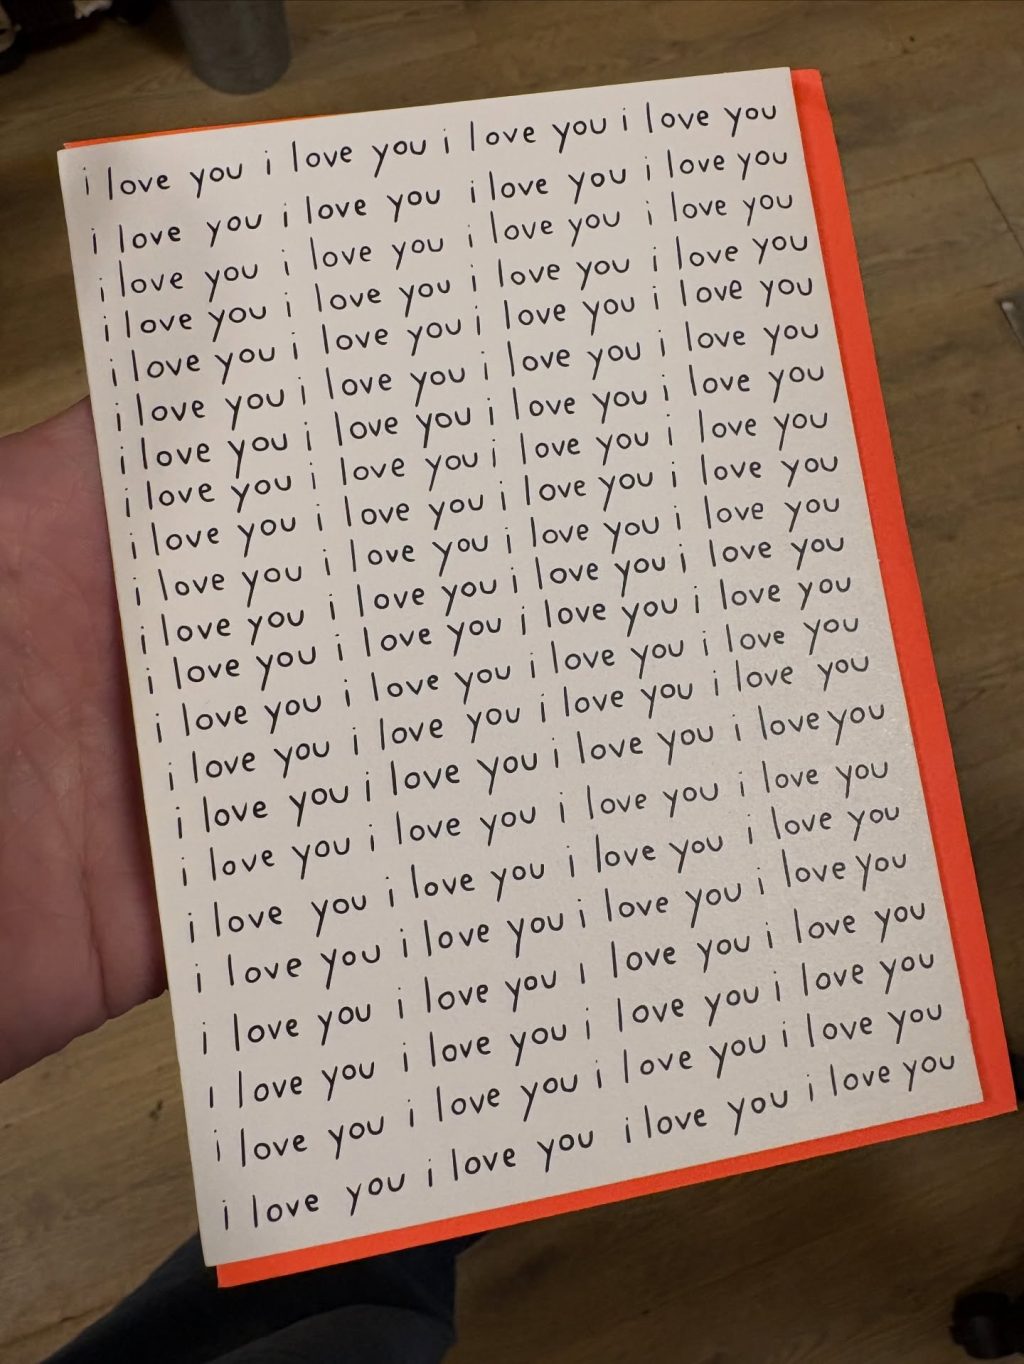 i love you i love you i love you i love you
i love you i love you i love you i love you
i love you i love you i love you i love you
i love you i love you i love you i love you
i love you i love you i love you i love you
i love you i love you i love you i love you
i love you i love you i love you i love you
i love you i love you i love you i love you
i love you i love you i love you i love you
i love you i love you i love you i love you
i love you i love you i love you i love you
i love you i love you i love you i love you
i love you i love you i love you i love you
i love you i love you i love you i love you
i love you i love you i love you i love you
i love you i love you i love you i love you
i love you i love you i love you i love you
i love you i love you i love you i love you
i love you i love you i love you i love you
i love you i love you i love you i love you
i love you i love you i love you i love you
i love you i love you i love you i love you